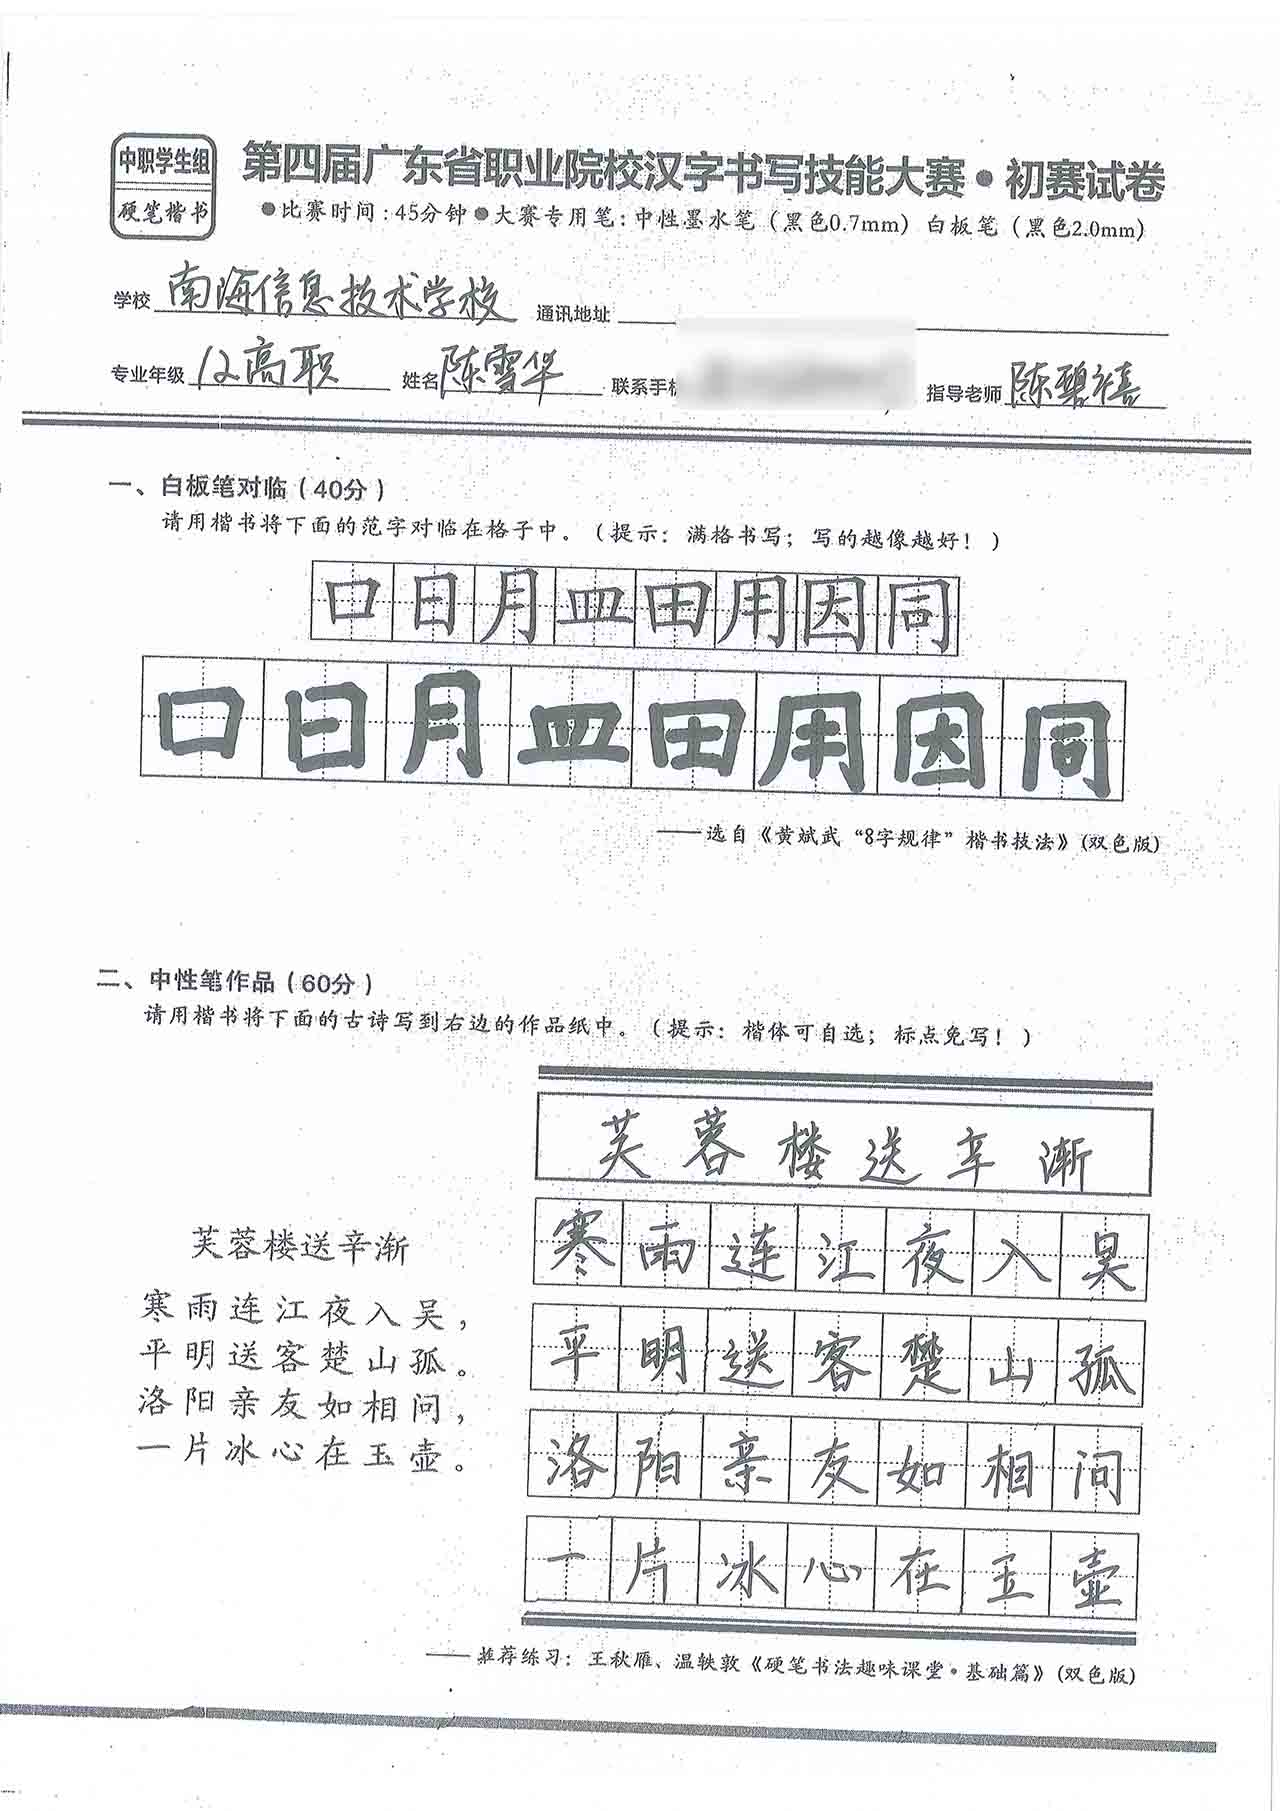 中职学生组
硬笔楷书
第四届广东省职业院校汉字书写技能大赛·初赛试卷
●比赛时间:45分钟●大赛专用笔:中性墨水笔(黑色0.7mm)白板笔(黑色2.0mm)
学校 南海信息技术学校 通讯地址
专业年级 12高职 姓名 陈雪华 联系手机 指导老师 陈碧禧
一、白板笔对临(40分)
请用楷书将下面的范字对临在格子中。(提示:满格书写;写的越像越好!)
口日月皿田用因同
口日月皿田用因同
——选自《黄斌武“8字规律”楷书技法》(双色版)
二、中性笔作品(60分)
请用楷书将下面的古诗写到右边的作品纸中。(提示:楷体可自选;标点免写!)
芙蓉楼送辛渐
寒雨连江夜入吴,
平明送客楚山孤。
洛阳亲友如相问,
一片冰心在玉壶。
芙蓉楼送辛渐
寒雨连江夜入吴
平明送客楚山孤
洛阳亲友如相问
一片冰心在玉壶
——推荐练习:王秋雁、温轶敦《硬笔书法趣味课堂·基础篇》(双色版)